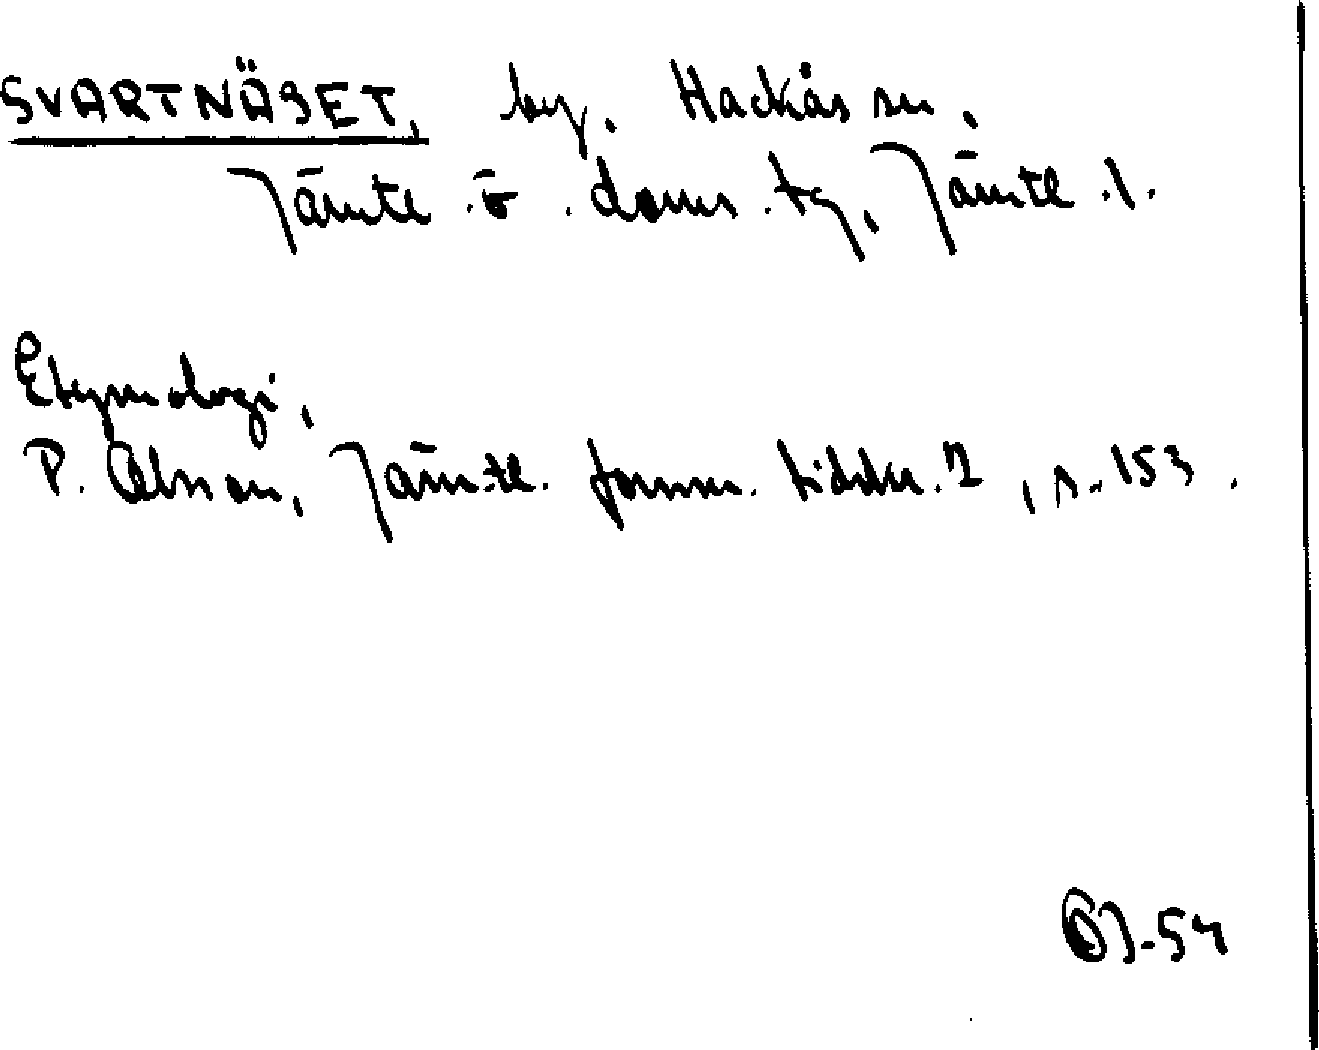 SVARTNÄSET, by. Hackås sn,
Jämtl. ö. doms. tg, Jämtl. l.
Etymologi,
P. Olsson, Jämtl. fornm. tidskr. 2, s. 153.